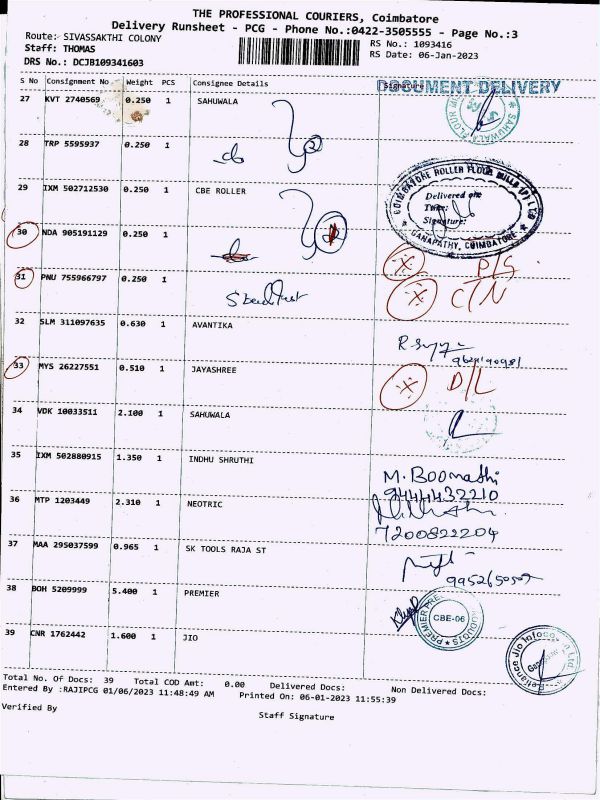 THE PROFESSIONAL COURIERS, Coimbatore
Delivery Runsheet - PCG - Phone No.:0422-3505555 - Page No.:3
Route: SIVASSAKTHI COLONY
Staff: THOMAS
DRS No.: DCJB109341603
RS No.: 1093416
RS Date: 06-Jan-2023
S No Consignment No. Weight PCS Consignee Details Signature
DOCUMENT DELIVERY
27 KVT 2740569 0.250 1 SAHUWALA
28 TRP 5595937 0.250 1
29 IXM 502712530 0.250 1 CBE ROLLER
COIMBATORE ROLLER FLOUR MILLS (P) LTD
Delivered on:
Time:
Signature:
GANAPATHY, COIMBATORE
30 NDA 905191129 0.250 1 D/S
31 PNU 755966797 0.250 1 C/N
32 SLM 311097635 0.630 1 AVANTIKA
33 MYS 26227551 0.510 1 JAYASHREE D/L
34 VDK 10033511 2.100 1 SAHUWALA
35 IXM 502880915 1.350 1 INDHU SHRUTHI M. BOOMATHI
9444432210
36 MTP 1203449 2.310 1 NEOTRIC
7200822204
37 MAA 295037599 0.965 1 SK TOOLS RAJA ST
38 BOH 5209999 5.400 1 PREMIER CBE-06
39 CNR 1762442 1.600 1 JIO
Reliance Jio Infocomm Ltd
Total No. Of Docs: 39 Total COD Amt: 0.00 Delivered Docs: Non Delivered Docs:
Entered By :RAJIPCG 01/06/2023 11:48:49 AM Printed On: 06-01-2023 11:55:39
Verified By
Staff Signature